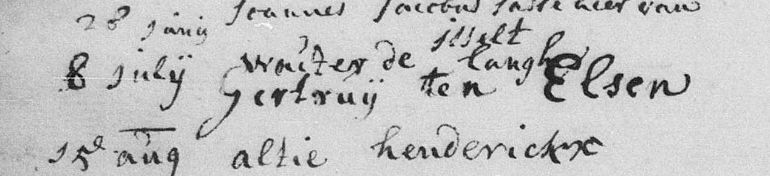 28 junij Joannes Jacobus van
isselt
8 julij wolter de Langh
Gertruij ten Elsen
15d aug altie henderickx